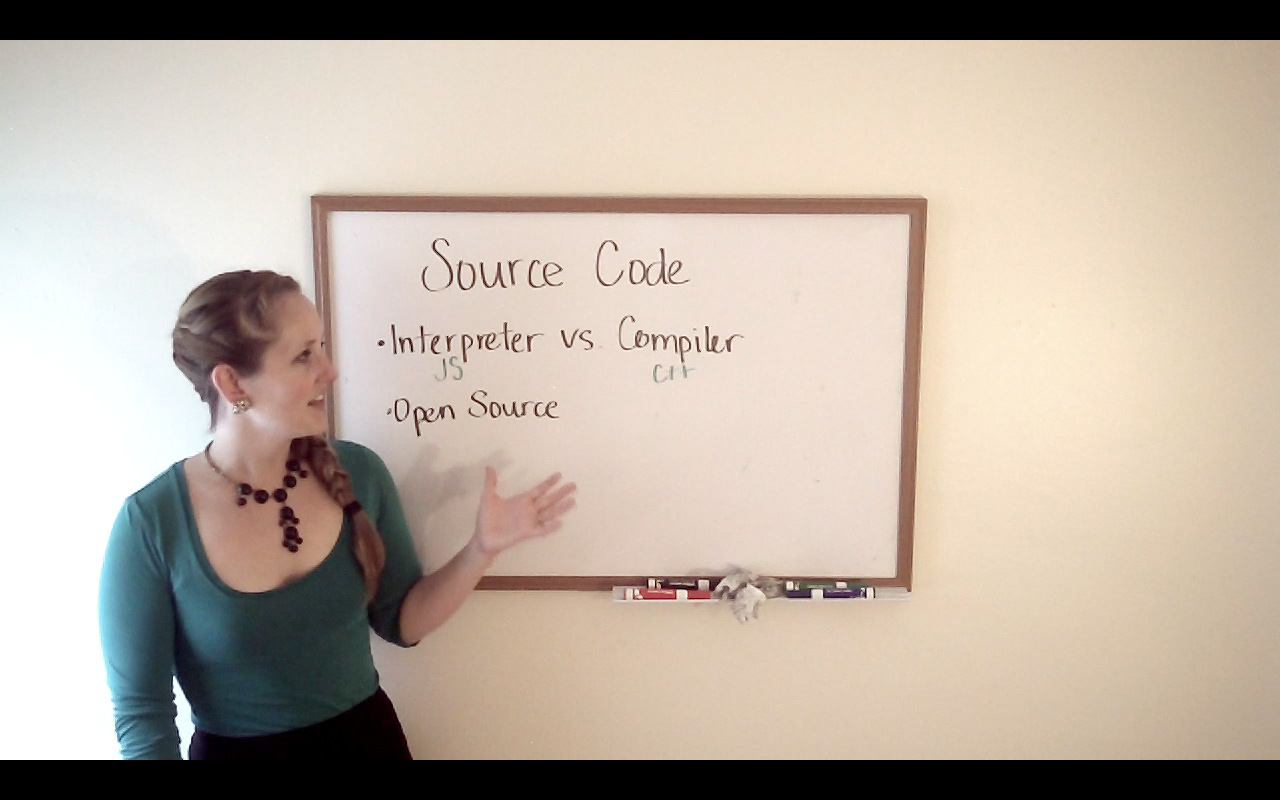 Source Code
•Interpreter vs. Compiler
JS C++
•Open Source